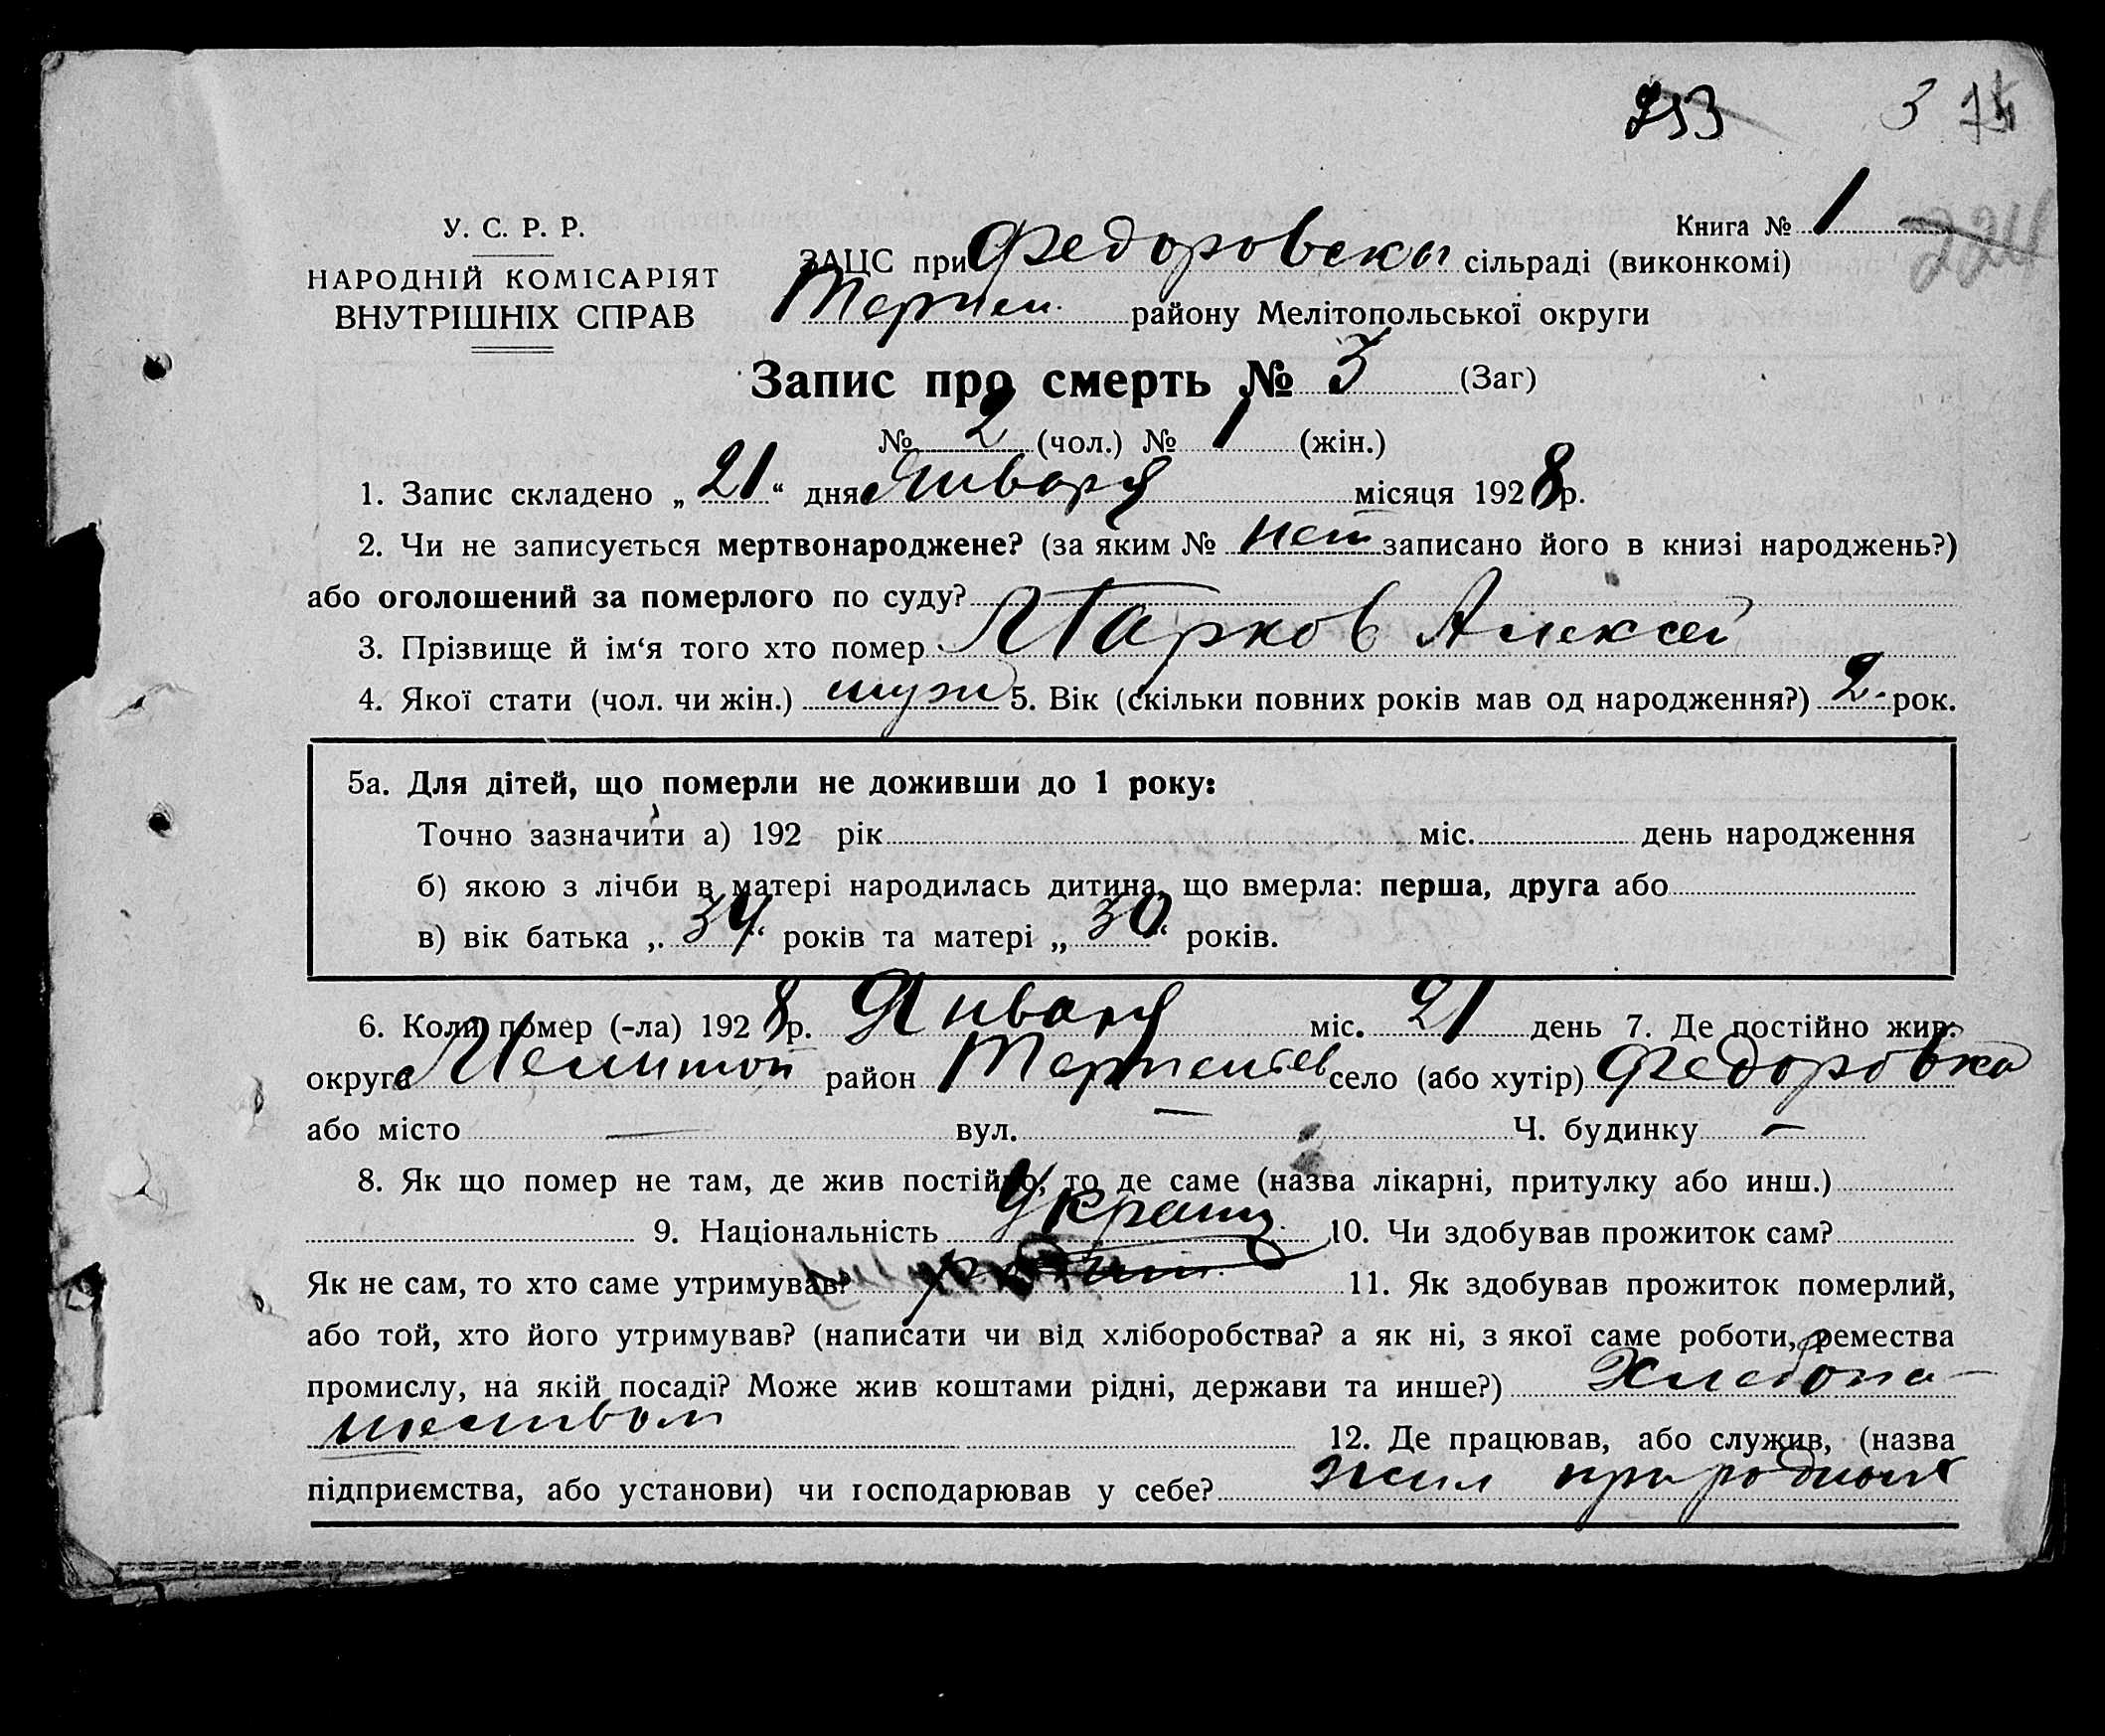 753 3
У. С. Р. Р.
НАРОДНІЙ КОМІСАРІЯТ
ВНУТРІШНІХ СПРАВ
Книга № 1 224
ЗАЦС при Федоровской сільраді (виконкомі)
Терпен. району Мелітопольської округи
Запис про смерть № 3 (Заг)
№ 2 (чол.) № 1 (жін.)
1. Запис складено „ 21 “ дня Января місяця 1928 р.
2. Чи не записується мертвонароджене? (за яким № нет записано його в книзі народжень?)
або оголошений за померлого по суду?
3. Прізвище й ім‘я того хто помер Алексей
4. Якої стати (чол. чи жін.) муж 5. Вік (скільки повних років мав од народження?) 2 рок.
5а. Для дітей, що померли не доживши до 1 року:
Точно зазначити а) 192 рік міс. день народження
б) якою з лічби в матері народилась дитина, що вмерла: перша, друга або
в) вік батька „ 34 “ років та матері „ 30 “ років.
6. Коли помер (-ла) 1928 р. Января міс. 21 день 7. Де постійно жив:
округа Мелитоп район Терпеньев село (або хутір) Федоровка
або місто — вул. — Ч. будинку —
8. Як що помер не там, де жив постійно, то де саме (назва лікарні, притулку або инш.)
9. Національність Украин. 10. Чи здобував прожиток сам?
Як не сам, то хто саме утримував? 11. Як здобував прожиток померлий,
або той, хто його утримував? (написати чи від хліборобства? а як ні, з якої саме роботи, ремества
промислу, на якій посаді? Може жив коштами рідні, держави та инше?) Хлебопа-
шеством
12. Де працював, або служив, (назва
підприємства, або установи) чи господарював у себе? жил при родных